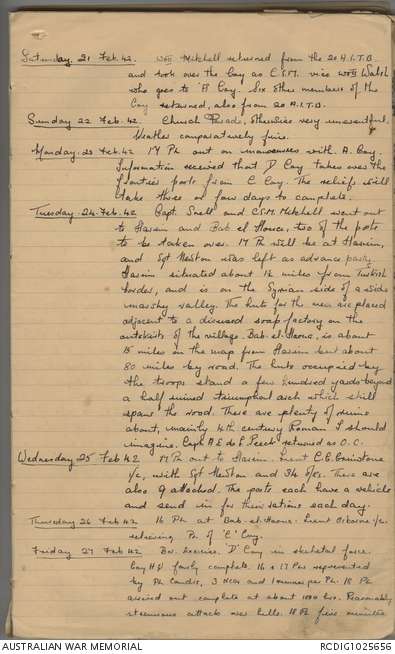 Saturday 21 Feb. 42. WOII Mitchell returned from the 20 A.I.T.B.
and took over the Coy as C.S.M. vice WOII Walsh
who goes to 'B' Coy. Six other members of the
Coy returned, also from 20 A.I.T.B.
Sunday 22 Feb. 42. Church Parade, otherwise very uneventful.
Weather comparatively fine.
Monday 23 Feb 42 17 Pl. out on manoeuvres with A. Coy.
Information received that D Coy takes over the
frontier posts from C Coy. The reliefs will
take three or four days to complete.
Tuesday 24 Feb. 42 Capt. Snell and C.S.M. Mitchell went out
to Harim and Bab el Haoua, two of the posts
to be taken over. 17 Pl will be at Harim,
and Sgt Newton was left as advance party.
Harim situated about 1½ miles from Turkish
border, and is on the Syrian side of a wide
marshy valley. The huts for the men are placed
adjacent to a disused soap factory on the
outskirts of the village. Bab-el-Haoua, is about
15 miles on the map from Harim but about
80 miles by road. The huts occupied by
the troops stand a few hundred yards beyond
a half ruined triumphal arch which still
spans the road. There are plenty of ruins
about, mainly 4th century Roman I should
imagine. Capt A E de L Peek returned as O.C.
Wednesday 25 Feb 42 17 Pl. out to Harim. Lieut C.G. Grimstone
i/c, with Sgt Newton and 34 O/Rs. There are
also 9 attached. The posts each have a vehicle
and send in for their rations each day.
Thursday 26 Feb 42 16 Pl. at Bab-el-Haoua. Lieut Osborne i/c
relieving Pl. of 'C' Coy.
Friday 27 Feb 42 Bn. Exercise. 'D' Coy in skeletal force.
Coy HQ fairly complete. 16 & 17 Pls represented
by Pl. Comdr, 3 men and 1 runner per Pl. 18 Pl.
carried out complete at about hrs. Reasonably
strenuous attacks over hills. 18 Pl. fire
AUSTRALIAN WAR MEMORIAL
RCDIG1025656